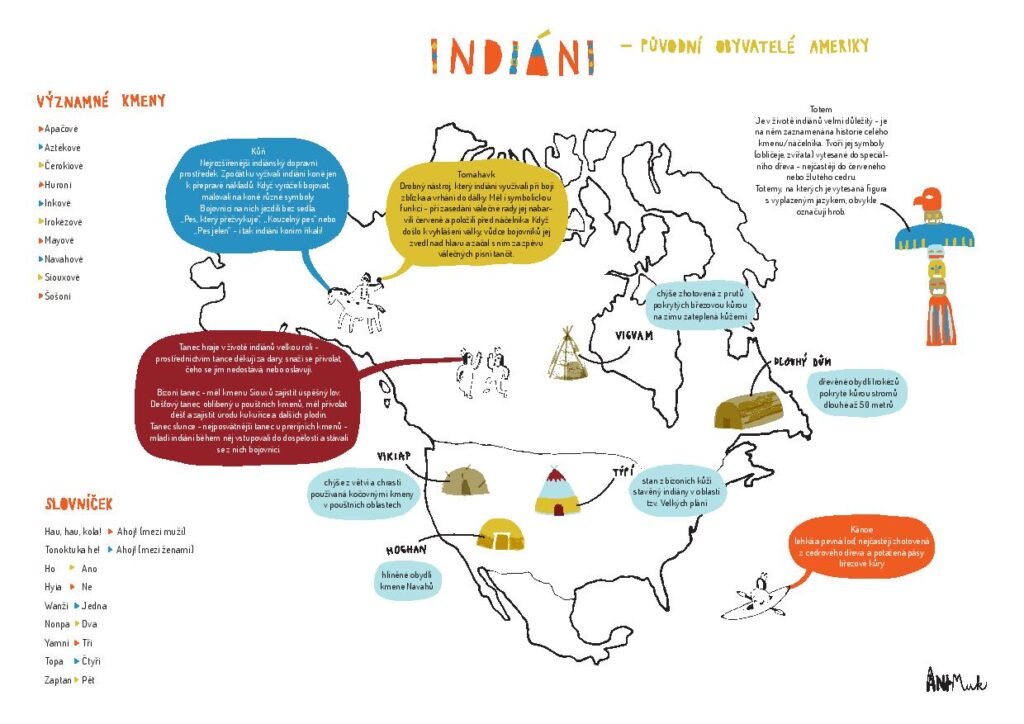 INDIÁNI – PŮVODNÍ OBYVATELÉ AMERIKY
VÝZNAMNÉ KMENY
Apačové
Aztékové
Čerokíové
Huroni
Inkové
Irokézové
Mayové
Navahové
Siouxové
Šošoni
Kůň
Nejrozšířenější indiánský dopravní
prostředek. Zpočátku využívali indiáni koně jen
k přepravě nákladů. Když vyráželi bojovat,
malovali na koně různé symboly.
Bojovníci na nich jezdili bez sedla.
„Pes, který přežvykuje“, „Kouzelný pes“ nebo
„Pes jelen“ – i tak indiáni koním říkali!
Tomahavk
Drobný nástroj, který indiáni využívali při boji
zblízka a vrhání do dálky. Měl i symbolickou
funkci – při zasedání válečné rady jej nabar-
vili červeně a položili před náčelníka. Když
došlo k vyhlášení války, vůdce bojovníků jej
zvedl nad hlavu a začal s ním za zpěvu
válečných písní tančit.
Totem
Je v životě indiánů velmi důležitý – je
na něm zaznamenána historie celého
kmenu/náčelníka. Tvoří jej symboly
(obličeje, zvířata) vytesané do speciál-
ního dřeva – nejčastěji do červeného
nebo žlutého cedru.
Totemy, na kterých je vytesaná figura
s vyplazeným jazykem, obvykle
označují hrob.
Tanec hraje v životě indiánů velkou roli –
prostřednictvím tance děkují za dary, snaží se přivolat,
čeho se jim nedostává, nebo oslavují.
Bizoní tanec – měl kmenu Siouxů zajistit úspěšný lov.
Dešťový tanec, oblíbený u pouštních kmenů, měl přivolat
déšť a zajistit úrodu kukuřice a dalších plodin.
Tanec slunce – nejposvátnější tanec u prérijních kmenů –
mladí indiáni během něj vstupovali do dospělosti a stávali
se z nich bojovníci.
chýše zhotovená z prutů
pokrytých březovou kůrou
na zimu zateplená kůžemi
VIGVAM
DLOUHÝ DŮM
dřevěné obydlí Irokézů
pokryté kůrou stromů
dlouhé až 50 metrů
VIKIAP
chýše z větví a chrastí
používaná kočovnými kmeny
v pouštních oblastech
TÝPÍ
stan z bizoních kůží
stavěný indiány v oblasti
tzv. Velkých plání
HOGHAN
hliněné obydlí
kmene Navahů
Kánoe
lehká a pevná loď, nejčastěji zhotovená
z cedrového dřeva a potažená pásy
březové kůry
SLOVNÍČEK
Hau, hau, kola! Ahoj! (mezi muži)
Tonoktuka he! Ahoj! (mezi ženami)
Ho Ano
Hyia Ne
Wanži Jedna
Nonpa Dva
Yamni Tři
Topa Čtyři
Zaptan Pět
ANI Muk